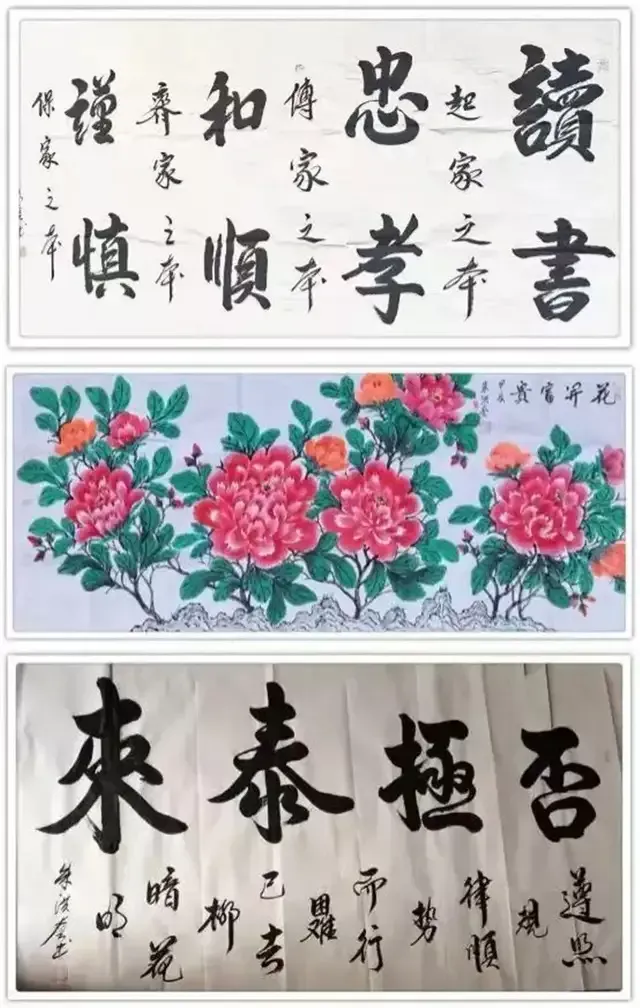 讀書
起家之本
忠孝
傳家之本
和順
齊家之本
謹慎
保家之本
花開富貴
甲辰
否極泰來
遵照
規
律順
勢
而行
困難
已去
柳
暗花
明